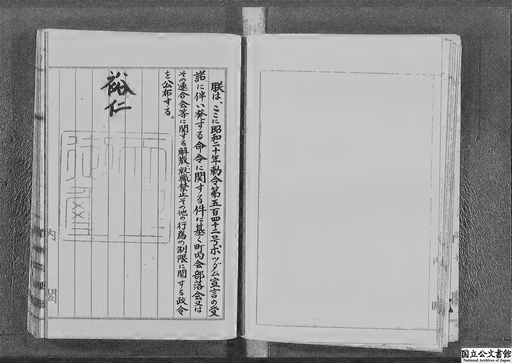 朕は、ここに昭和二十年勅令第五百四十二号ポツダム宣言の受
諾に伴い発する命令に関する件に基く町内会部落会又は
その連合会等に関する解散、就職禁止その他の行為の制限に関する政令
を公布する。
裕仁
内閣
国立公文書館
National Archives of Japan